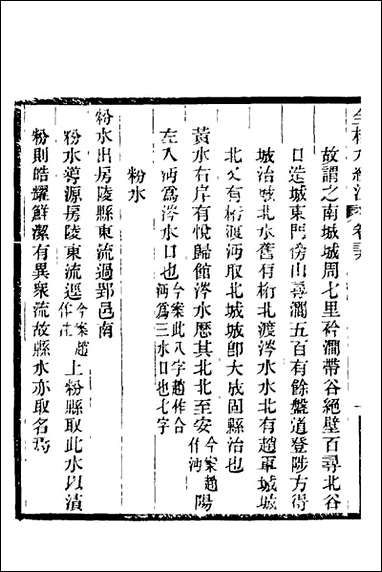 故謂之南城城周七里矜澗帶谷絕壁百尋北谷
口造城東門傍山尋澗五百有餘盤道登陟方得
城治城北水舊有桁北渡涔水水北有趙軍城城
北又有桁渡沔取北城城卽大成固縣治也
黃水右岸有悅歸館涔水歷其北北至安今案趙作沔陽
左入沔爲涔水口也今案此八字趙作合沔爲三水口也七字
粉水
粉水出房陵縣東流過郢邑南
粉水導源房陵東流逕今案趙作注上粉縣取此水以漬
粉則皓耀鮮潔有異衆流故縣水亦取名焉